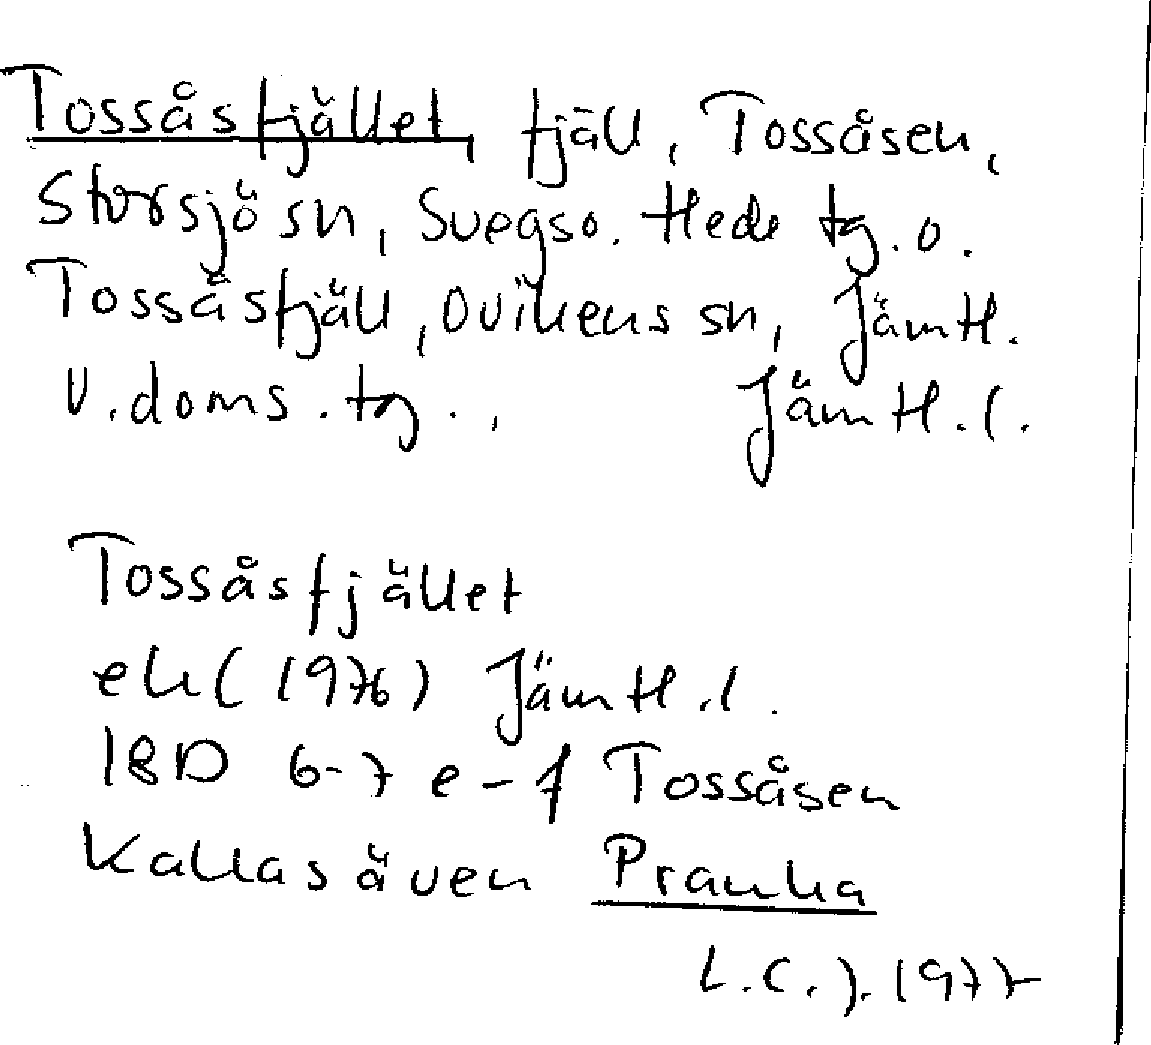 Tossåsfjället, fjäll, Tossåsen,
Storsjö sn, Svegs o. Hede tg. o.
Tossåsfjäll, Ovikens sn, Jämtl.
V. doms. tg., Jämtl. l.
Tossåsfjället
ek (1976) Jämtl. l.
18D 6-7 e-f Tossåsen
Kallas även
L.C.J. 1977